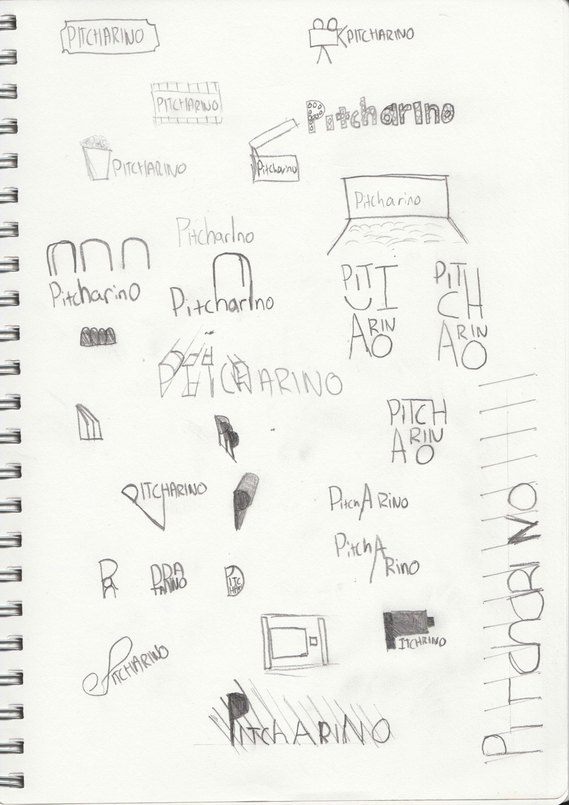 PITCHARINO
PITCHARINO
PITCHARINO
Pitcharino
PITCHARINO
Pitcharino
Pitcharino
PitcharIno
Pitcharino
PitcharIno
PITCH
ARINO
PITCHARINO
PITCH
ARINO
PITCHARINO
PITCHARINO
PITCHARINO
PITCHARINO
PITCHARINO
PITCHARINO
PITCHARINO
PITCHARINO
PITCHARINO